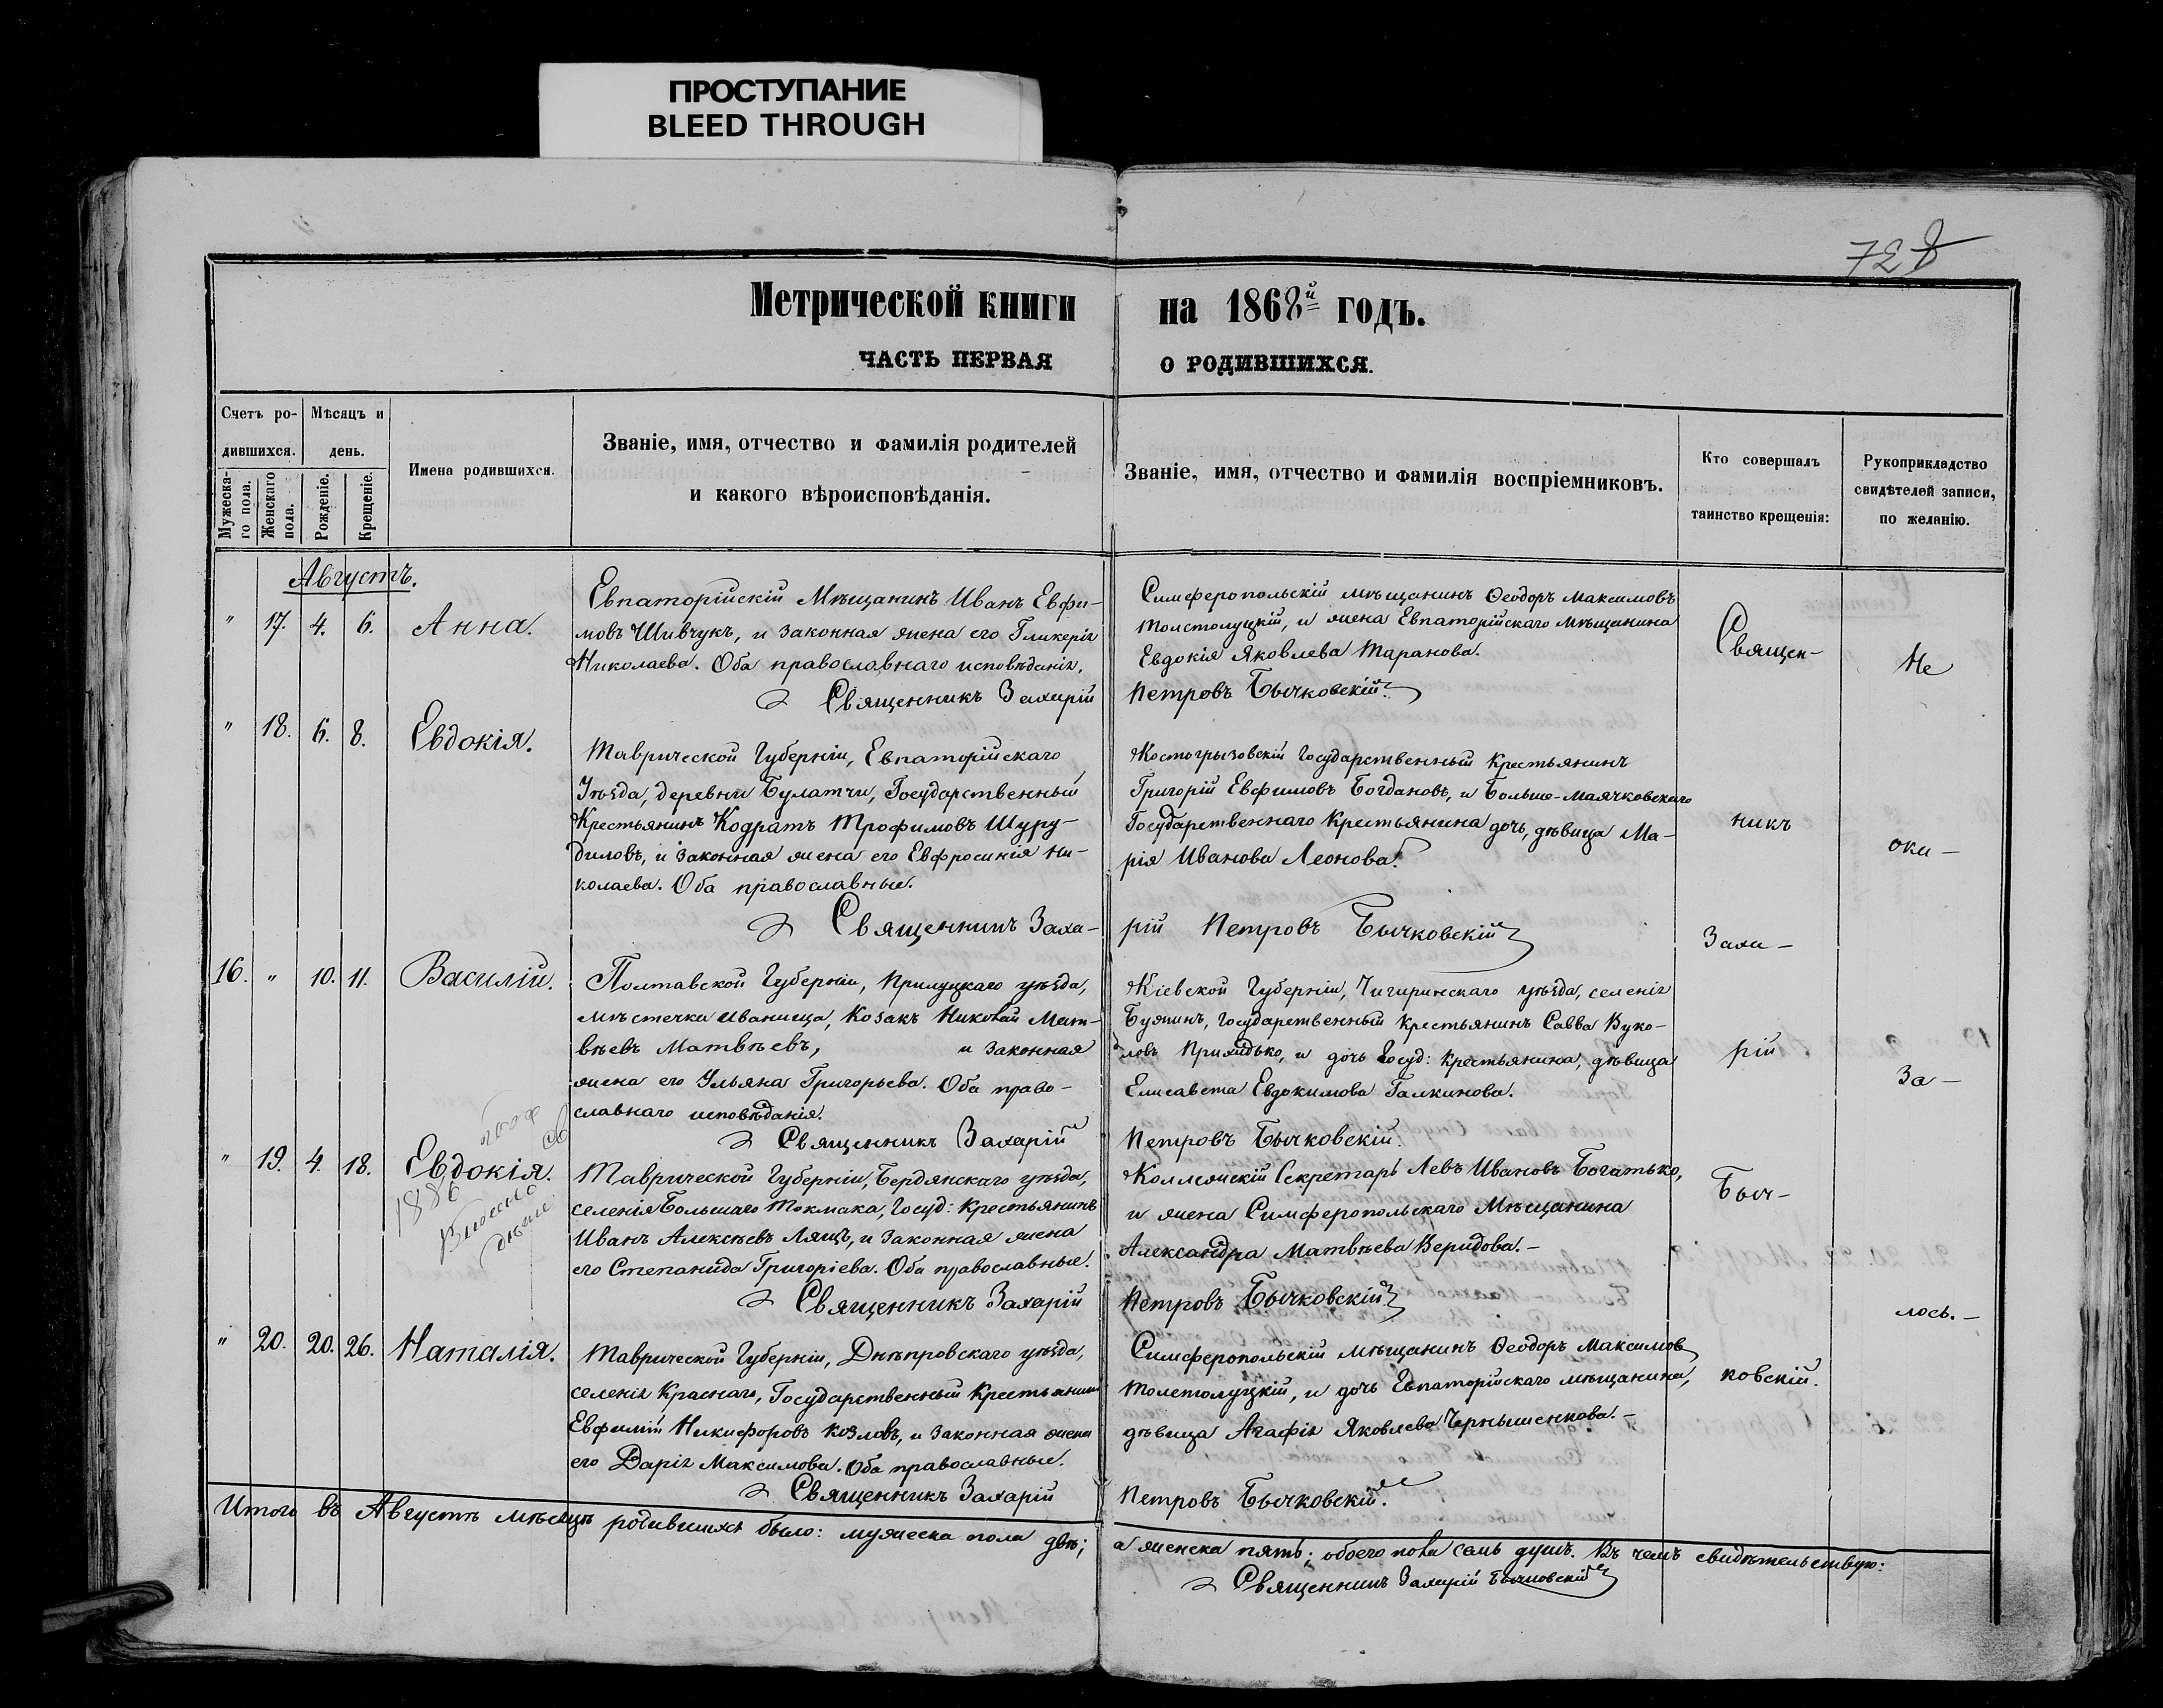 ПРОСТУПАНИЕ
BLEED THROUGH
728
Метрической книги на 1868й годъ.
ЧАСТЬ ПЕРВАЯ О РОДИВШИХСЯ.
Счетъ ро-
дившихся.
Мужеска-
го пола.
Женскаго
пола.
Мѣсяцъ и
день.
Рожденіе.
Крещеніе.
Имена родившихся.
Званіе, имя, отчество и фамилія родителей
и какого вѣроисповѣданія.
Званіе, имя, отчество и фамилія воспріемниковъ.
Кто совершалъ
таинство крещенія:
Рукоприкладство
свидѣтелей записи,
по желанію.
Августъ.
" 17. 4. 6. Анна.
Евпаторійскій Мѣщанинъ Иванъ Евфи-
мовъ Шивчукъ, и законная жена его Гликерія
Николаева. Оба православнаго исповѣданія.
Симферопольскій мѣщанинъ Ѳеодоръ Максимовъ
Толстолуцкій, и жена Евпаторійскаго мѣщанина
Евдокія Яковлева Таранова.
Священникъ Захарій Петровъ Бычковскій
" 18. 6. 8. Евдокія.
Таврической Губерніи, Евпаторійскаго
Уѣзда, деревни Булатчи, Государственный
Крестьянинъ Кодратъ Трофимовъ Шуру-
диловъ, и законная жена его Евфросинія Ни-
колаева. Оба православные.
Костогрызовскій Государственный Крестьянинъ
Григорій Евфимовъ Богдановъ, и Больше-Маячковскаго
Государственнаго Крестьянина дочь, дѣвица Ма-
рія Иванова Леонова.
Священникъ Заха- рій Петровъ Бычковскій
16. " 10. 11. Василій.
Полтавской Губерніи, Прилуцкаго уѣзда,
мѣстечка Иваница, Козакъ Николай Мат-
вѣевъ Матвѣевъ, и законная
жена его Ульяна Григорьева. Оба право-
славнаго исповѣданія.
Кіевской Губерніи, Чигиринскаго уѣзда, селенія
Бужинъ, Государственный крестьянинъ Савва Вуко-
ловъ и дочь Госуд: крестьянина, дѣвица
Елисавета Евдокимова Галкинова.
Священникъ Захарій Петровъ Бычковскій.
" 19. 4. 18. Евдокія.
1886
Таврической Губерніи, Бердянскаго уѣзда,
селенія Большаго Токмака, Госуд: Крестьянинъ
Иванъ Алексѣевъ Лящъ, и законная жена
его Степанида Григоріева. Оба православные.
Коллежскій Секретарь Левъ Ивановъ Богатько,
и жена Симферопольскаго Мѣщанина
Александра Матвѣева Веридова.-
Священникъ Захарій Петровъ Бычковскій
" 20. 20. 26. Наталія.
Таврической Губерніи, Днѣпровскаго уѣзда,
селенія Краснаго, Государственный Крестьянинъ
Евфимій Никифоровъ Козловъ, и законная жена
его Дарія Максимова. Оба православные.
Симферопольскій мѣщанинъ Ѳеодоръ Максимовъ
Толстолуцкій, и дочь Евпаторійскаго мѣщанина,
дѣвица Агафія Яковлева Чернышенкова.-
Священникъ Захарій Петровъ Бычковскій.
Священ-
никъ
Заха-
рій
Быч-
ковскій.
Не
ока-
за-
лось.-
Итого въ Августѣ мѣсяцѣ родившихся было: мужеска пола два; а женска пять; обоего пола семь душъ. Въ чемъ свидѣтельствую:
Священникъ Захарій Бычковскій